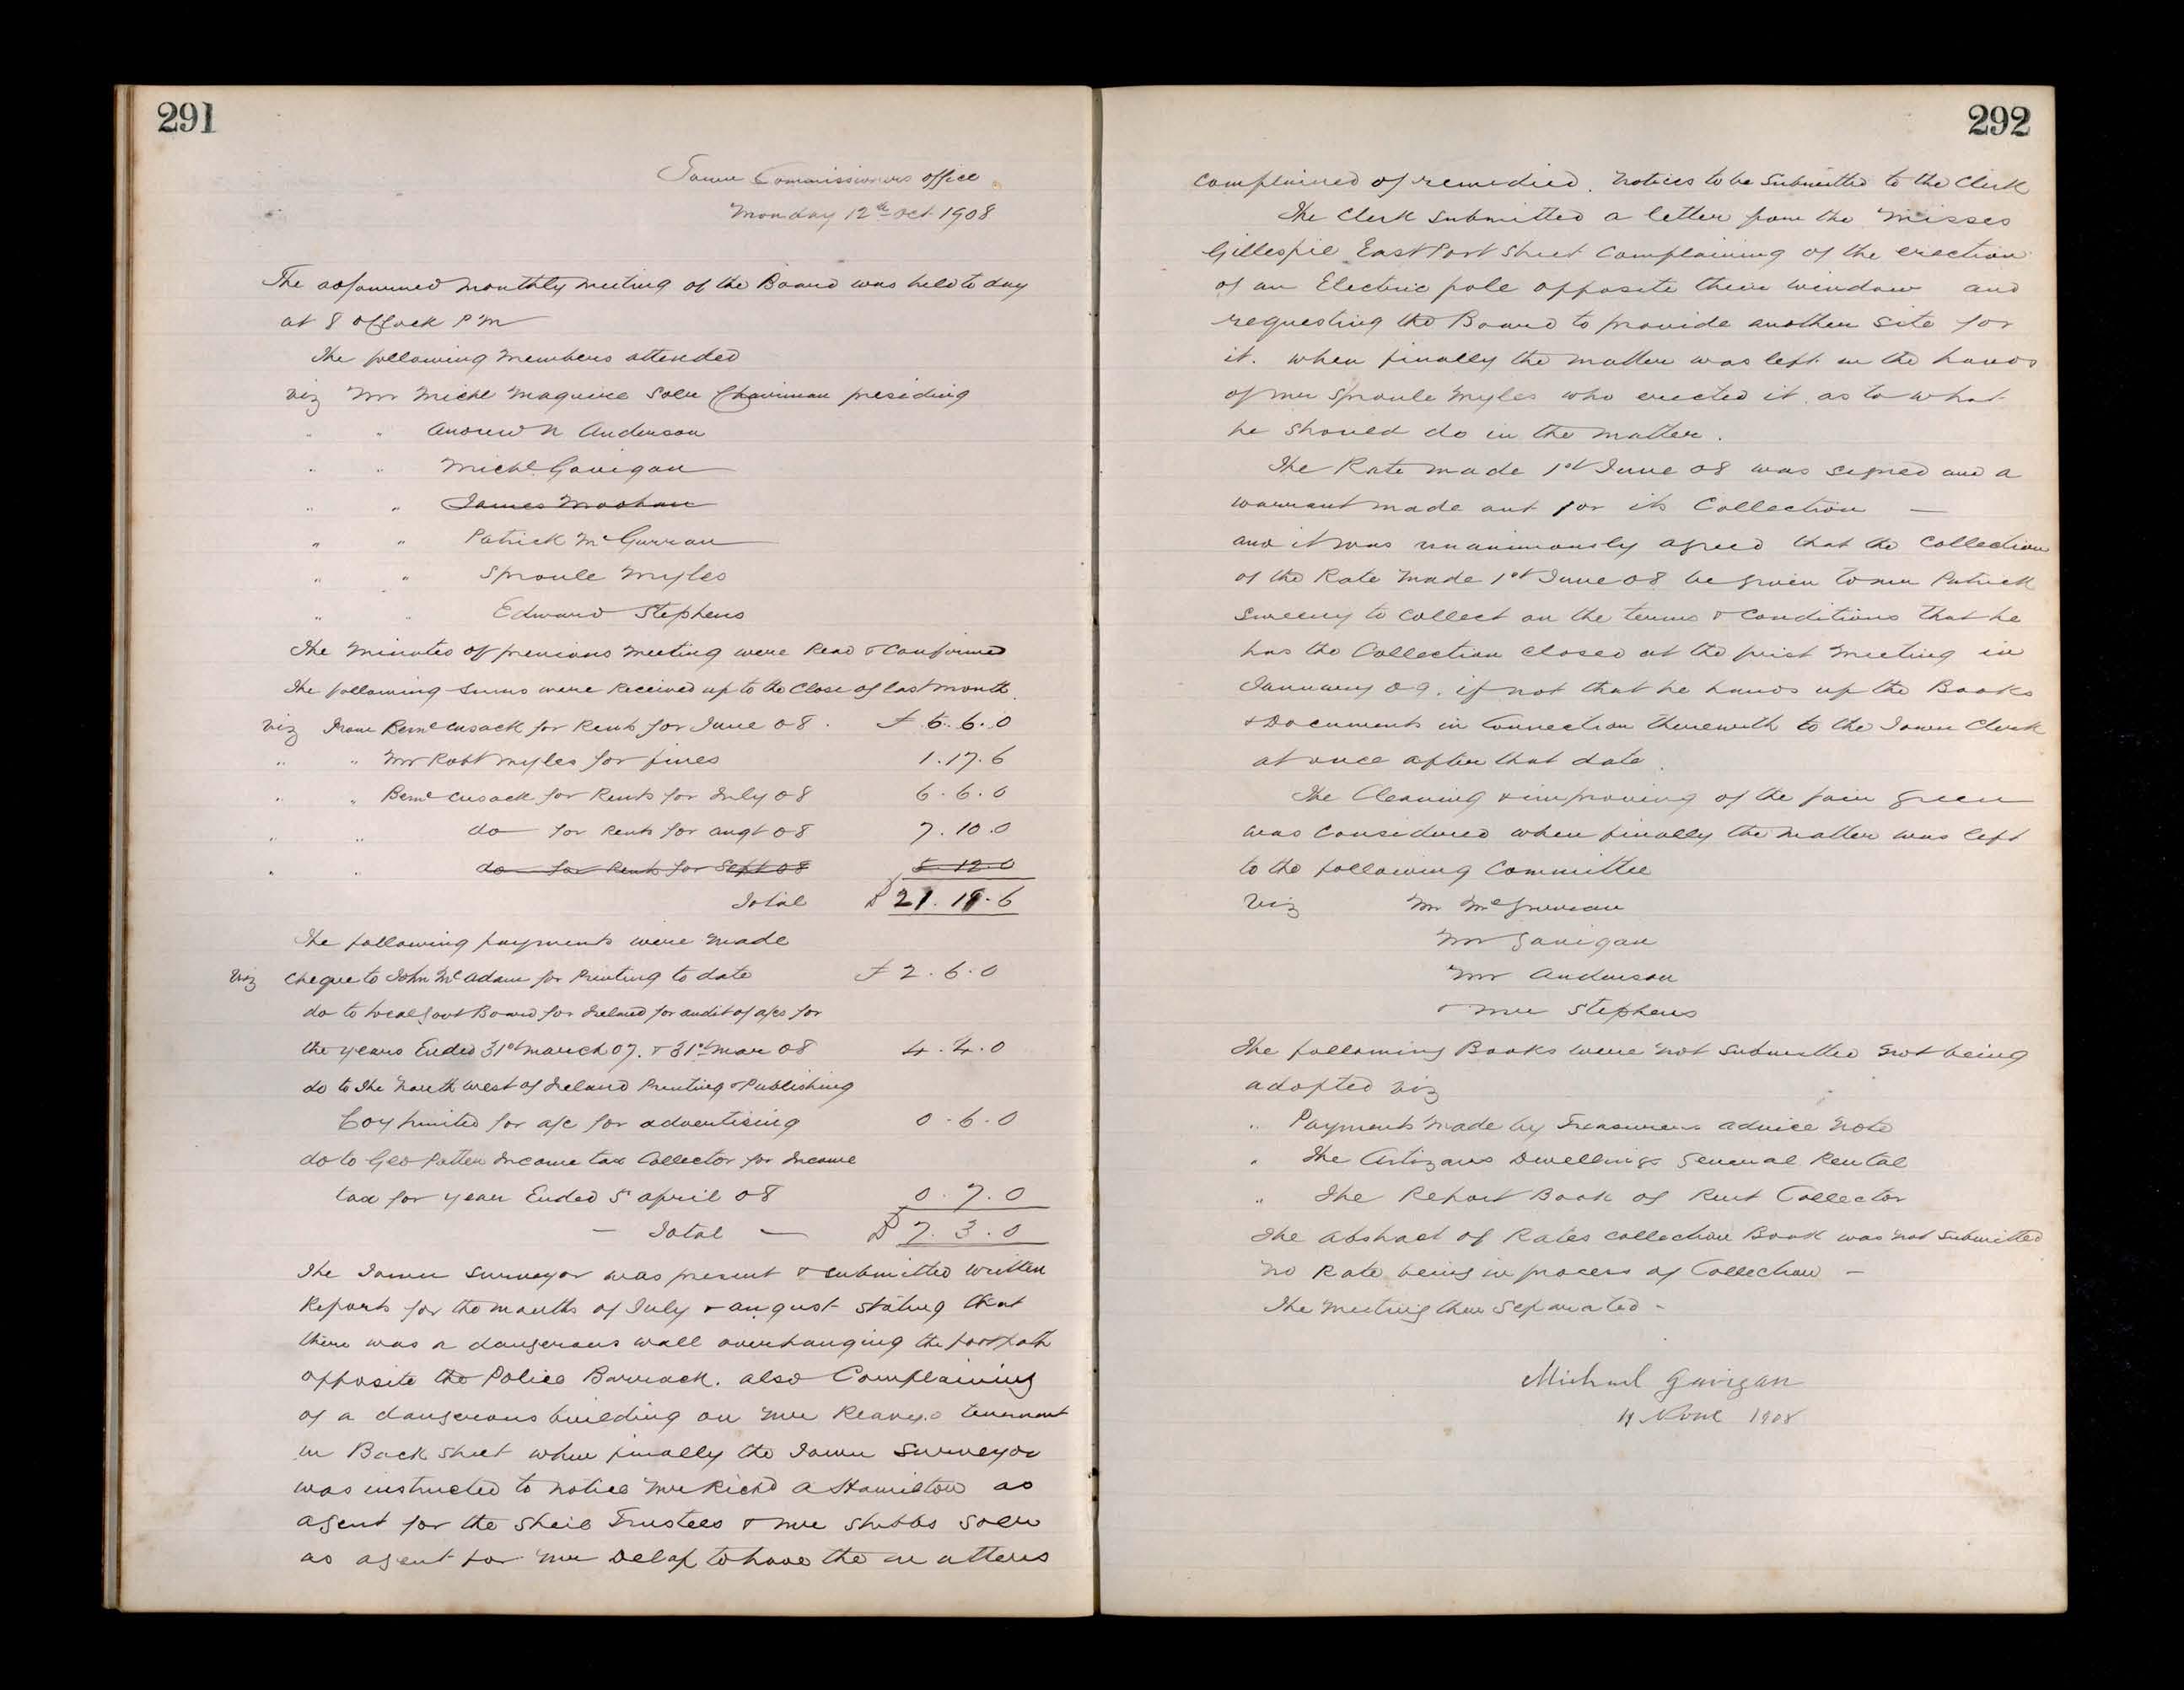 291
Town Commissioners office
Monday 12th Oct 1908
The adjourned monthly meeting of the Board was held to day
at 8 oClock P M
The following members attended
viz Mr Michl Maguire Solr Chairman presiding
" " Andrew N Anderson
" " Michl Gavigan
" " James Moohan
" " Patrick McGurran
" " Sproule Myles
" " Edward Stephens
The Minutes of previous meeting were Read & Confirmed
The following sums were Received up to the Close of last month.
viz From Bernd Cusack for Rents for June 08. £ 6. 6. 0
" " Mr Robt Myles for fines 1. 17. 6
" " Bernd Cusack for Rents for July 08 6. 6. 0
" " do for Rents for augt 08 7. 10. 0
" " do for Rents for Sept 08 5. 12. 0
Total £ 21. 19. 6
The following payments were made
Viz Cheque to John McAdam for Printing to date £ 2. 6. 0
do to Local Govt Board for Ireland for audit of a/cs for
the years Ended 31st march 07. & 31st Mar 08 4. 4. 0
do to The North West of Ireland Printing & Publishing
Coy Limited for a/c for advertising 0. 6. 0
do to Geo Patten Income tax Collector for Income
tax for year Ended 5th april 08 0. 7. 0
— Total — £ 7. 3. 0
The Town Surveyor was present & submitted written
Reports for the months of July & august stating that
there was a dangerous wall overhanging the footpath
opposite the Police Barrack. also Complaining
of a dangerous building on Mr tenement
in Back Street when finally the Town Surveyor
was instructed to notice Mr Richd A Hamilton as
agent for the Sheil Trustees & Mr Stubbs Solr
as agent for Mr Delap to have the matters
292
Complained of remedied. Notices to be Submitted to the Clerk
The Clerk submitted a letter from the Misses
Gillespie East Port Street Complaining of the erection
of an Electric pole opposite their window and
requesting the Board to provide another site for
it. when finally the matter was left in the hands
of Mr Sproule Myles who erected it. as to what
he should do in the matter.
The Rate made 1st June 08 was signed and a
warrant made out for its Collection —
and it was unanimously agreed that the Collection
of the Rate made 1st June 08 be given to Mr Patrick
Sweeny to Collect on the terms & Conditions that he
has the Collection closed at the first meeting in
January 09. if not that he hands up the Books
& Documents in Connection therewith to the Town Clerk
at once after that date.
The Cleaning & improving of the fair green
was Considered when finally the matter was left
to the following Committee
Viz Mr McGurran
Mr Gavigan
Mr Anderson
& Mr Stephens
The following Books were not submitted not being
adopted viz
" Payments made by Treasurers advice note
" The Artizans Dwellings General Rental
" The Report Book of Rent Collector
The Abstract of Rates Collection Book was not Submitted
no Rate being in process of Collection —
The Meeting then Separated -
Michael Gavigan
1908